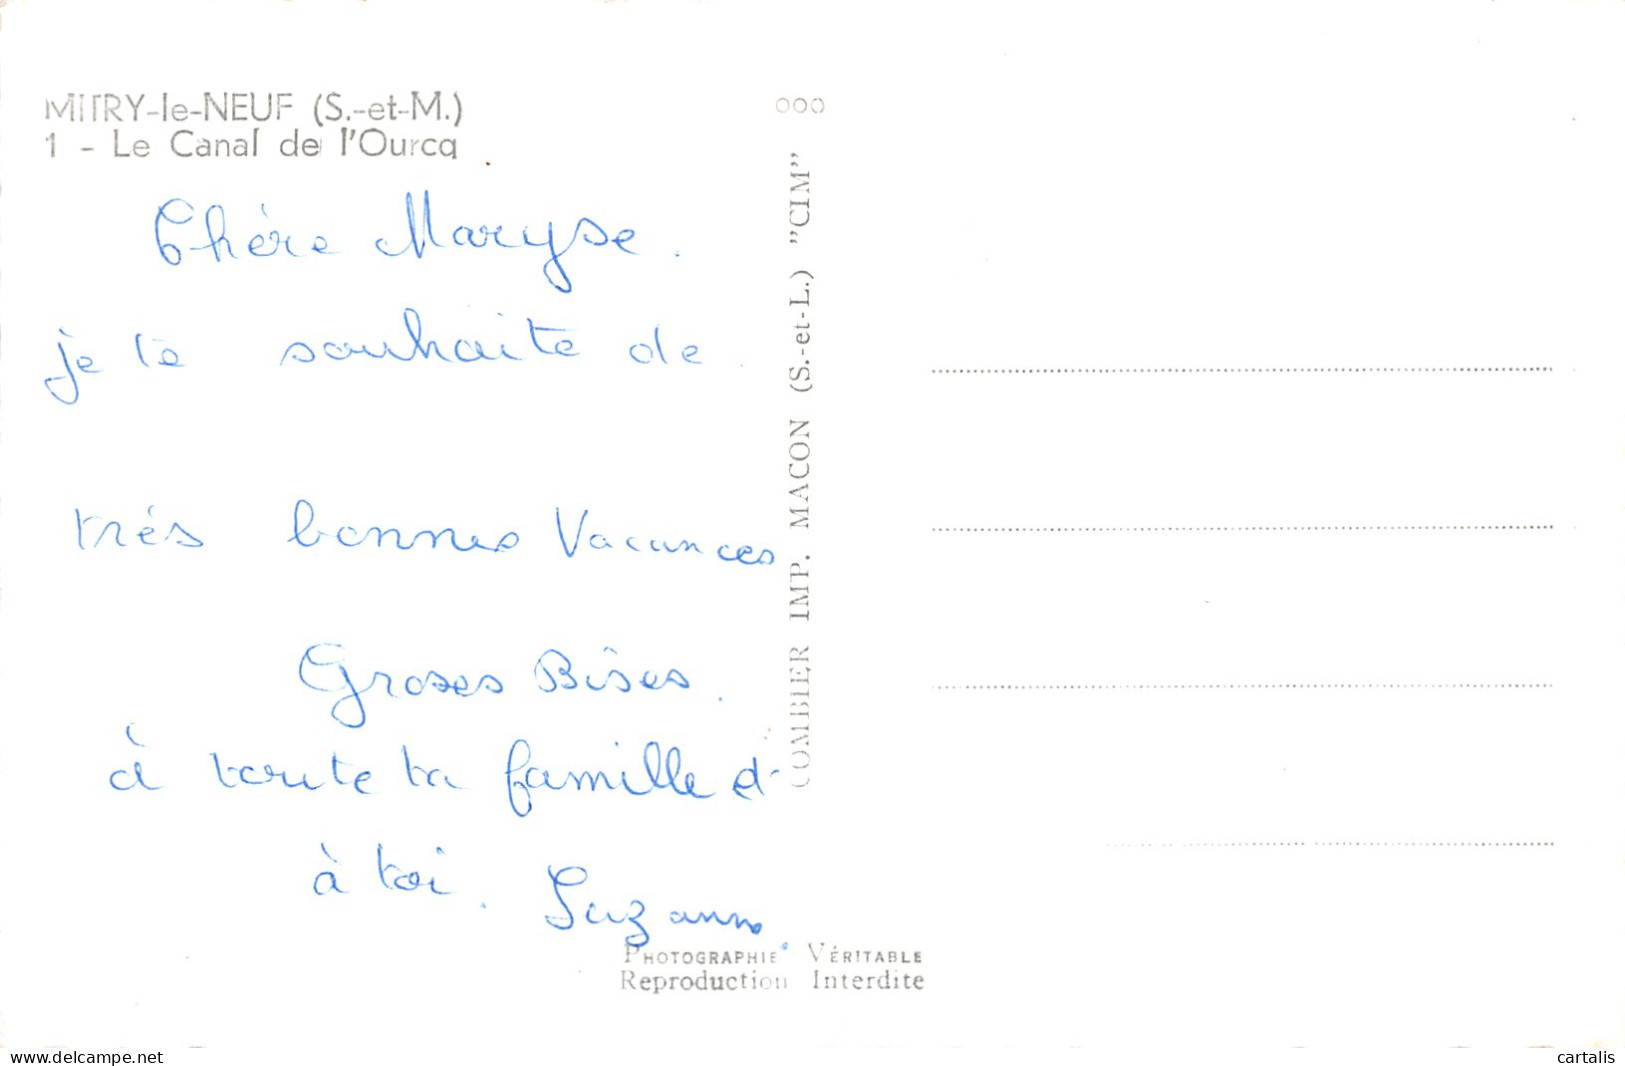 MITRY-le-NEUF (S.-et-M.)
1 - Le Canal de l'Ourcq
Chère Maryse.
je te souhaite de
trés bonnes Vacances
Groses Bises.
à toute ta famille et
à toi. Suzanne
000
COMBIER IMP. MACON (S.-et-L.) "CIM"
PHOTOGRAPHIE VÉRITABLE
Reproduction Interdite
www.delcampe.net
cartalis